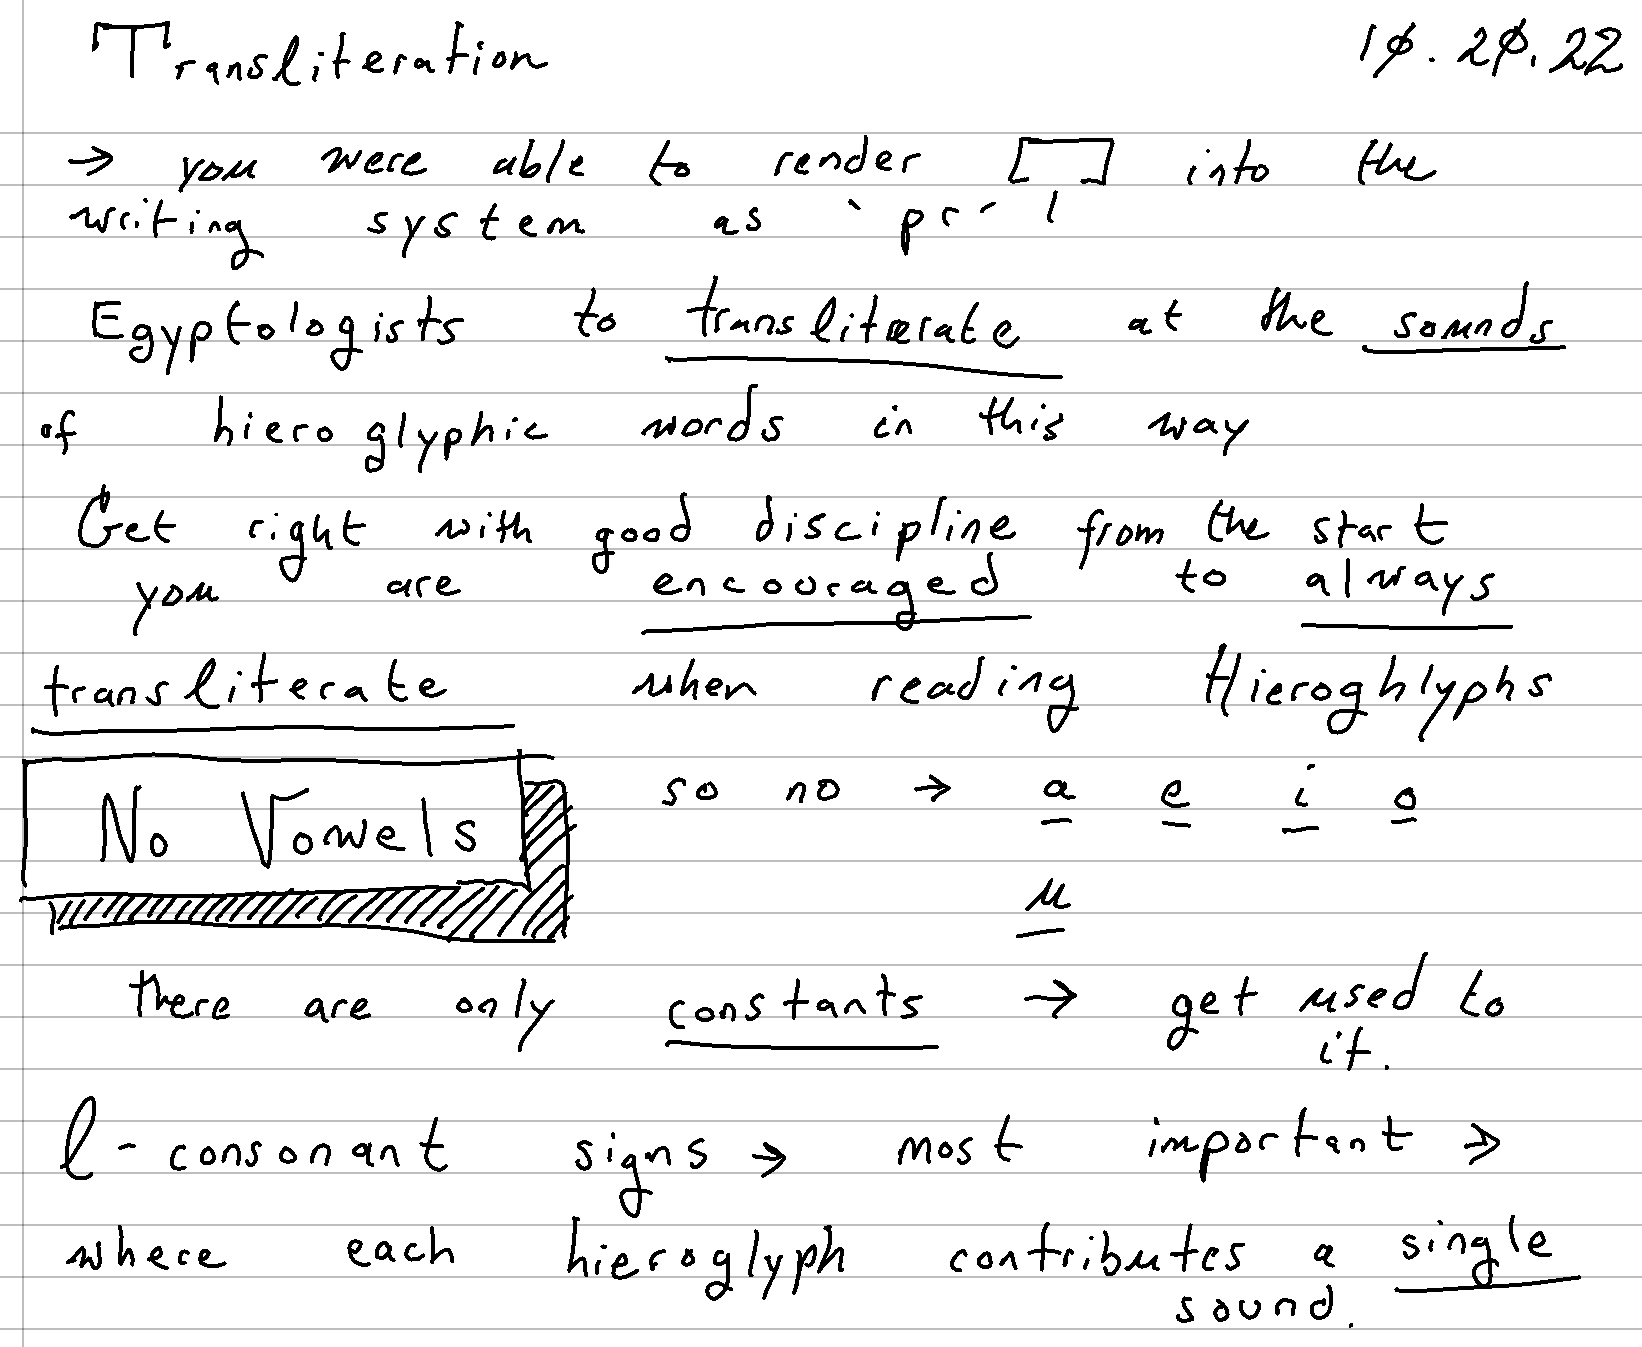 Transliteration 10.20.22
→ you were able to render into the
writing system as `pr´
Egyptologists to transliterate at the sounds
of hieroglyphic words in this way
Get right with good discipline from the start
you are encouraged to always
transliterate when reading Hieroghlyphs
No Vowels so no → a e i o
u
there are only constants → get used to
it.
1-consonant signs → most important →
where each hieroglyph contributes a single
sound.